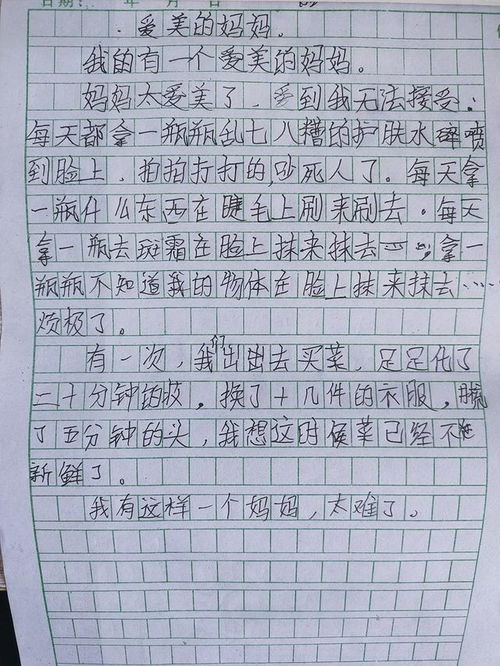 日期： 年 月 日
爱美的妈妈。
我的有一个爱美的妈妈。
妈妈太爱美了，爱到我无法接受：
每天都拿一瓶瓶乱七八糟的护肤水 喷
到脸上，拍拍打打的，吵死人了。每天拿
一瓶什么东西在睫毛上刷来刷去。每天
拿一瓶去斑霜在脸上抹来抹去……，拿一
瓶瓶不知道我的物体在脸上抹来抹去……
烦极了。
有一次，我们出出去买菜，足足化了
二十分钟的妆，换了十几件的衣服，梳
了五分钟的头，我想这时候菜已经不
新鲜了。
我有这样一个妈妈，太难了。